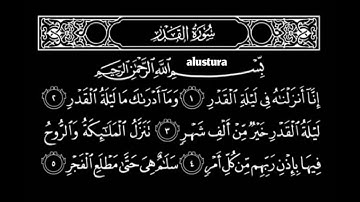 سُورَةُ القَدْرِ
alustura
بِسْمِ اللَّهِ الرَّحْمَٰنِ الرَّحِيمِ
إِنَّا أَنزَلْنَٰهُ فِي لَيْلَةِ الْقَدْرِ ١ وَمَا أَدْرَىٰكَ مَا لَيْلَةُ الْقَدْرِ ٢
لَيْلَةُ الْقَدْرِ خَيْرٌ مِّنْ أَلْفِ شَهْرٍ ٣ تَنَزَّلُ الْمَلَٰٓئِكَةُ وَالرُّوحُ
فِيهَا بِإِذْنِ رَبِّهِم مِّن كُلِّ أَمْرٍ ٤ سَلَٰمٌ هِيَ حَتَّىٰ مَطْلَعِ الْفَجْرِ ٥